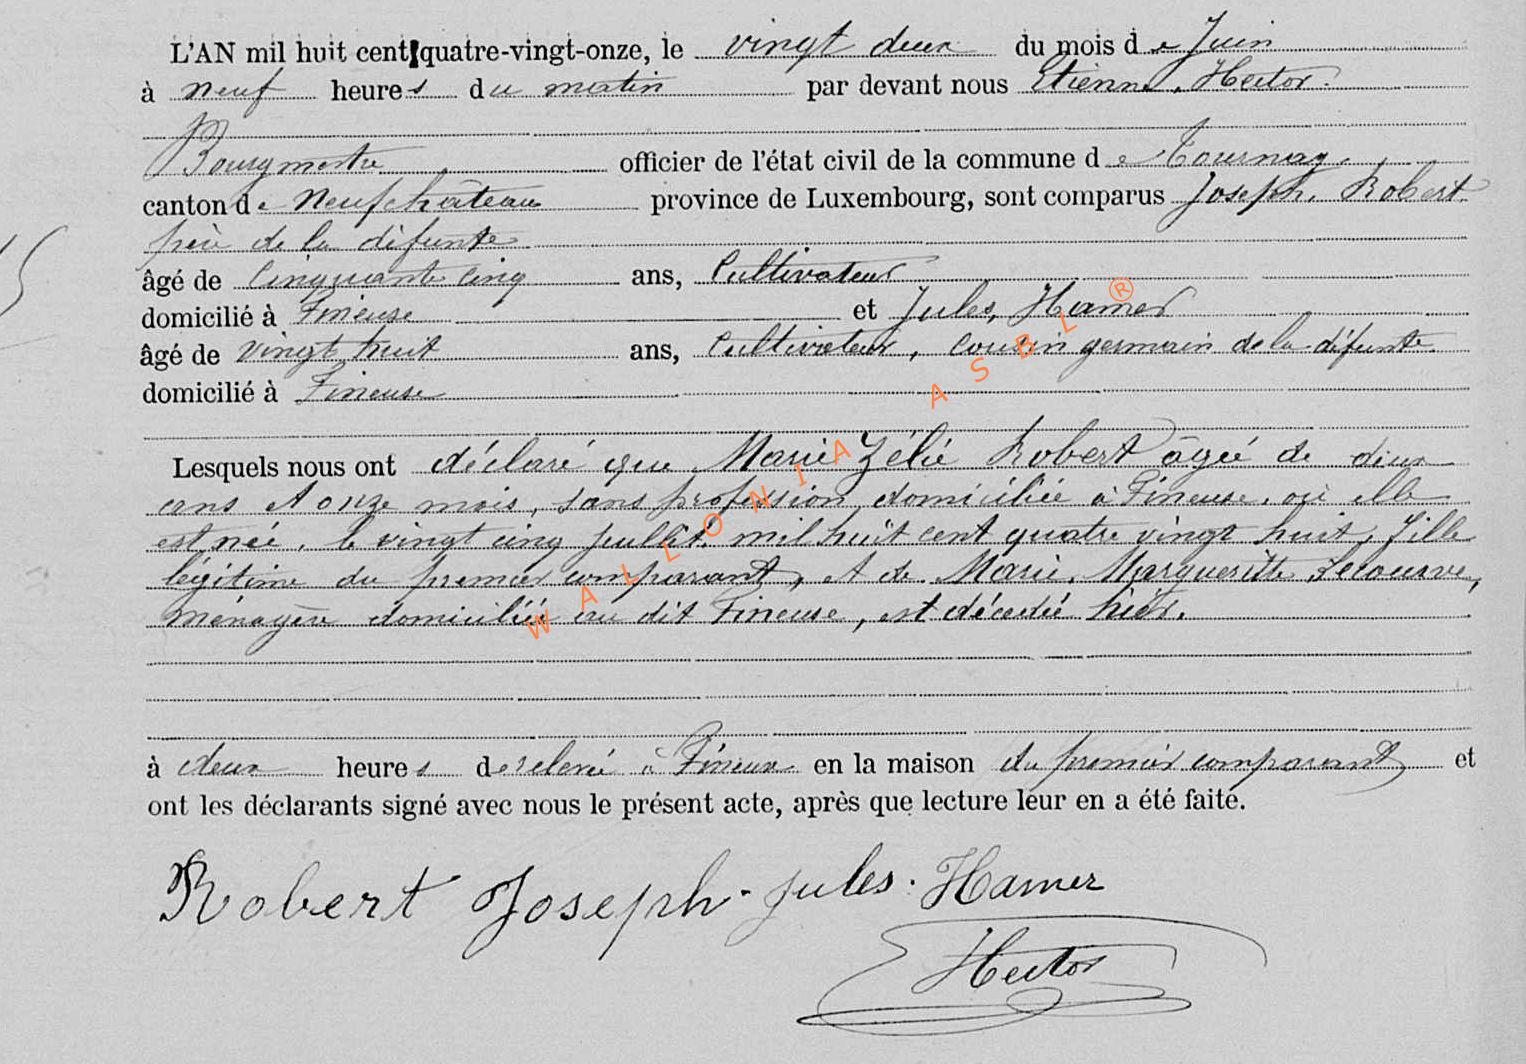 L'AN mil huit cent quatre-vingt-onze, le vingt deux du mois de Juin
à neuf heures du matin par devant nous Etienne, Hector.
Bourgmestre officier de l'état civil de la commune de Tournay,
canton de Neufchâteau province de Luxembourg, sont comparus Joseph, Robert
père de la défunte
âgé de Cinquante cinq ans, Cultivateur
domicilié à Fineuse et Jules, Hamer
âgé de vingt huit ans, Cultivateur, Cousin germain de la défunte
domicilié à Fineuse
Lesquels nous ont déclaré que Marie Zélie Robert âgée de deux
ans et onze mois, sans profession, domiciliée à Fineuse, où elle
est née, le vingt cinq juillet mil huit cent quatre vingt huit, fille
légitime du premier comparant, et de Marie, Marguerite
ménagère domiciliée au dit Fineuse, est décédée hier.
à deux heures de relevé à Fineuse en la maison du premier comparant et
ont les déclarants signé avec nous le présent acte, après que lecture leur en a été faite.
Robert Joseph. Jules. Hamer
Hector
WALLONIA ASBL ®